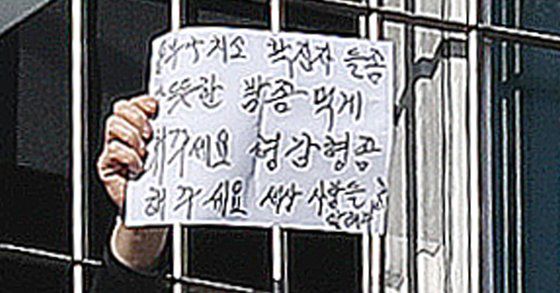 치소 확진자 들좀
뜻한 밥좀 먹게
해주세요 형 감형좀
해주세요 세상 사람들